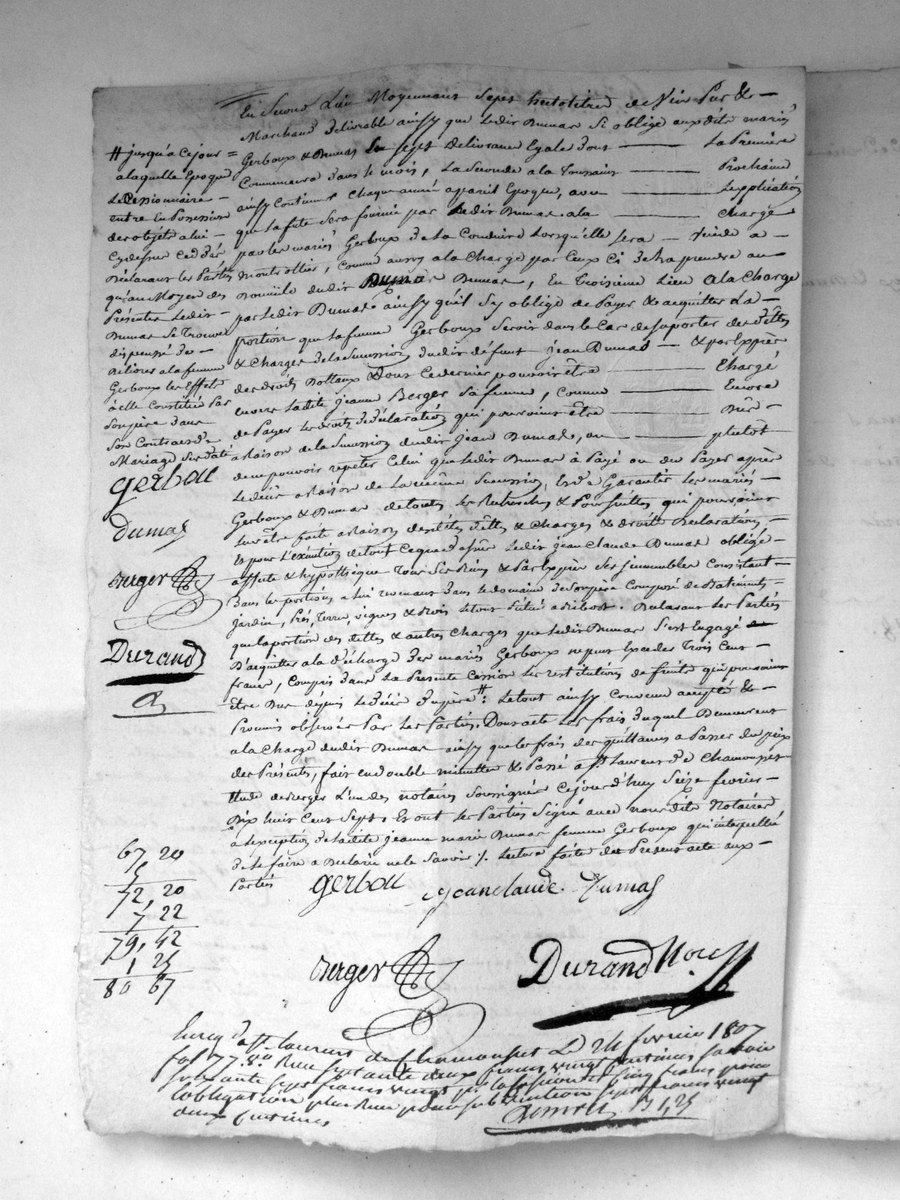 En Second Lieu Moyennant Sept hectolitres de Vin Pur &
Marchand délivrable ainsy que ledit Dumas Si oblige auxdits mariés
Gerboux & Dumas En Sept Délivrance Egale dont La Première
Commencera dans le mois, La Seconde a la Toussaint Prochaine
ainsy Continuer Chaque année a pareil Epoque, avec Explication
que la fute Sera fournie par Ledit Dumas a la Charge
par les mariés Gerboux De la Conduire Lorsqu'elle Sera Vuide a
Montrottier, Comme aussy a la Charge par Ceux Ci De la prendre au
Domicile dudit Dumas, En troisieme Lieu a la Charge
par ledit Dumas ainsy quil Sy oblige de Payer & acquitter La
portion que la femme Gerboux Seroit dans le Cas de Suporter des Dettes
& Charges De la Succession dudit défunt Jean Dumas & par Exprès
des droits Dottaux Dont Ce dernier pourroit être Chargé
envers Ladite Jeanne Berger Sa femme, Comme Encore
de Payer Les droits De déclaration qui pourroient être Dûs
a Raison de la Succession dudit Jean Dumas, ou plutôt
de ne pouvoir repeter Celui que ledit Dumas a Payé ou du Payer après
Le déces a Raison de La même Succession, & de Garantir Les mariés
Gerboux & Dumas de toutes Les Recherches & Poursuittes qui pourroient
leur être faite a Raison desdites dettes & Charges & droits Declarations
& pour L'exécution de tout Ce que dessus ledit jean Claude Dumas oblige
affecte & hypothèque Tous Ses Biens & Par Exprès Ses immeubles Consistant
Dans les portions a lui revenant Dans le domaine de Son père Composé de Batiments
Jardin, Prés, Terre, vignes & Bois le tout Situé a Ribost. Déclarant Les Parties
que la portion des dettes & autres Charges que ledit Dumas S'est Engagé
D'aquitter a la décharge Des mariés Gerboux ne peut Excéder Trois Cent
francs, Compris Dans La Presente Cession Les restitutions de fruits qui pouvoient
être Dus depuis Le Décès Du père #: Le tout ainsy Convenu accepté &
Promis observer Par Les Parties. Dont acte Les frais Duquel Demeurent
a la Charge dudit Dumas ainsy que les frais des quittances a Passer du prix
des Présents, fait en double minutte & Passé a St Laurent De Chamousset
Etude de Berger L'un des notaires Soussignés Ce jourd'huy Seize fevrier
Dix huit Cent Sept. Et ont Les Parties Signé avec nous dits Notaires
a L'exception De ladite jeanne marie Dumas femme Gerboux qui interpellée
De le faire a Déclaré ne le Savoir /. Lecture faite des Present acte aux
Parties
# jusqu'a Ce jour =
a laquelle Epoque
Le Cessionnaire
entre En Possession
des objets a lui
Cy dessus Cedé
Déclarant les Parties
qu'au Moyen des
Présentes Ledit
Dumas Se Trouve
dispensé De
Délivrer a la femme
Gerboux les Effets
a elle Constitués Par
Son père dans
Son Contrat de
Mariage Susdaté
gerbou
Dumas
Berger
Durand
67 20
5
72, 20
7 22
79, 42
1 25
80 67
gerbou Jeanclaude Dumas
Berger Durand Nore
Enreg. à St. Laurent de Chamousset Le 24 fevrier 1807
fol 77 Reçu Soixante douze francs vingt centimes savoir
soixante sept francs vingt pr la cession et cinq francs pour
l'obligation plus Reçu pour subvention sept francs vingt
deux centimes